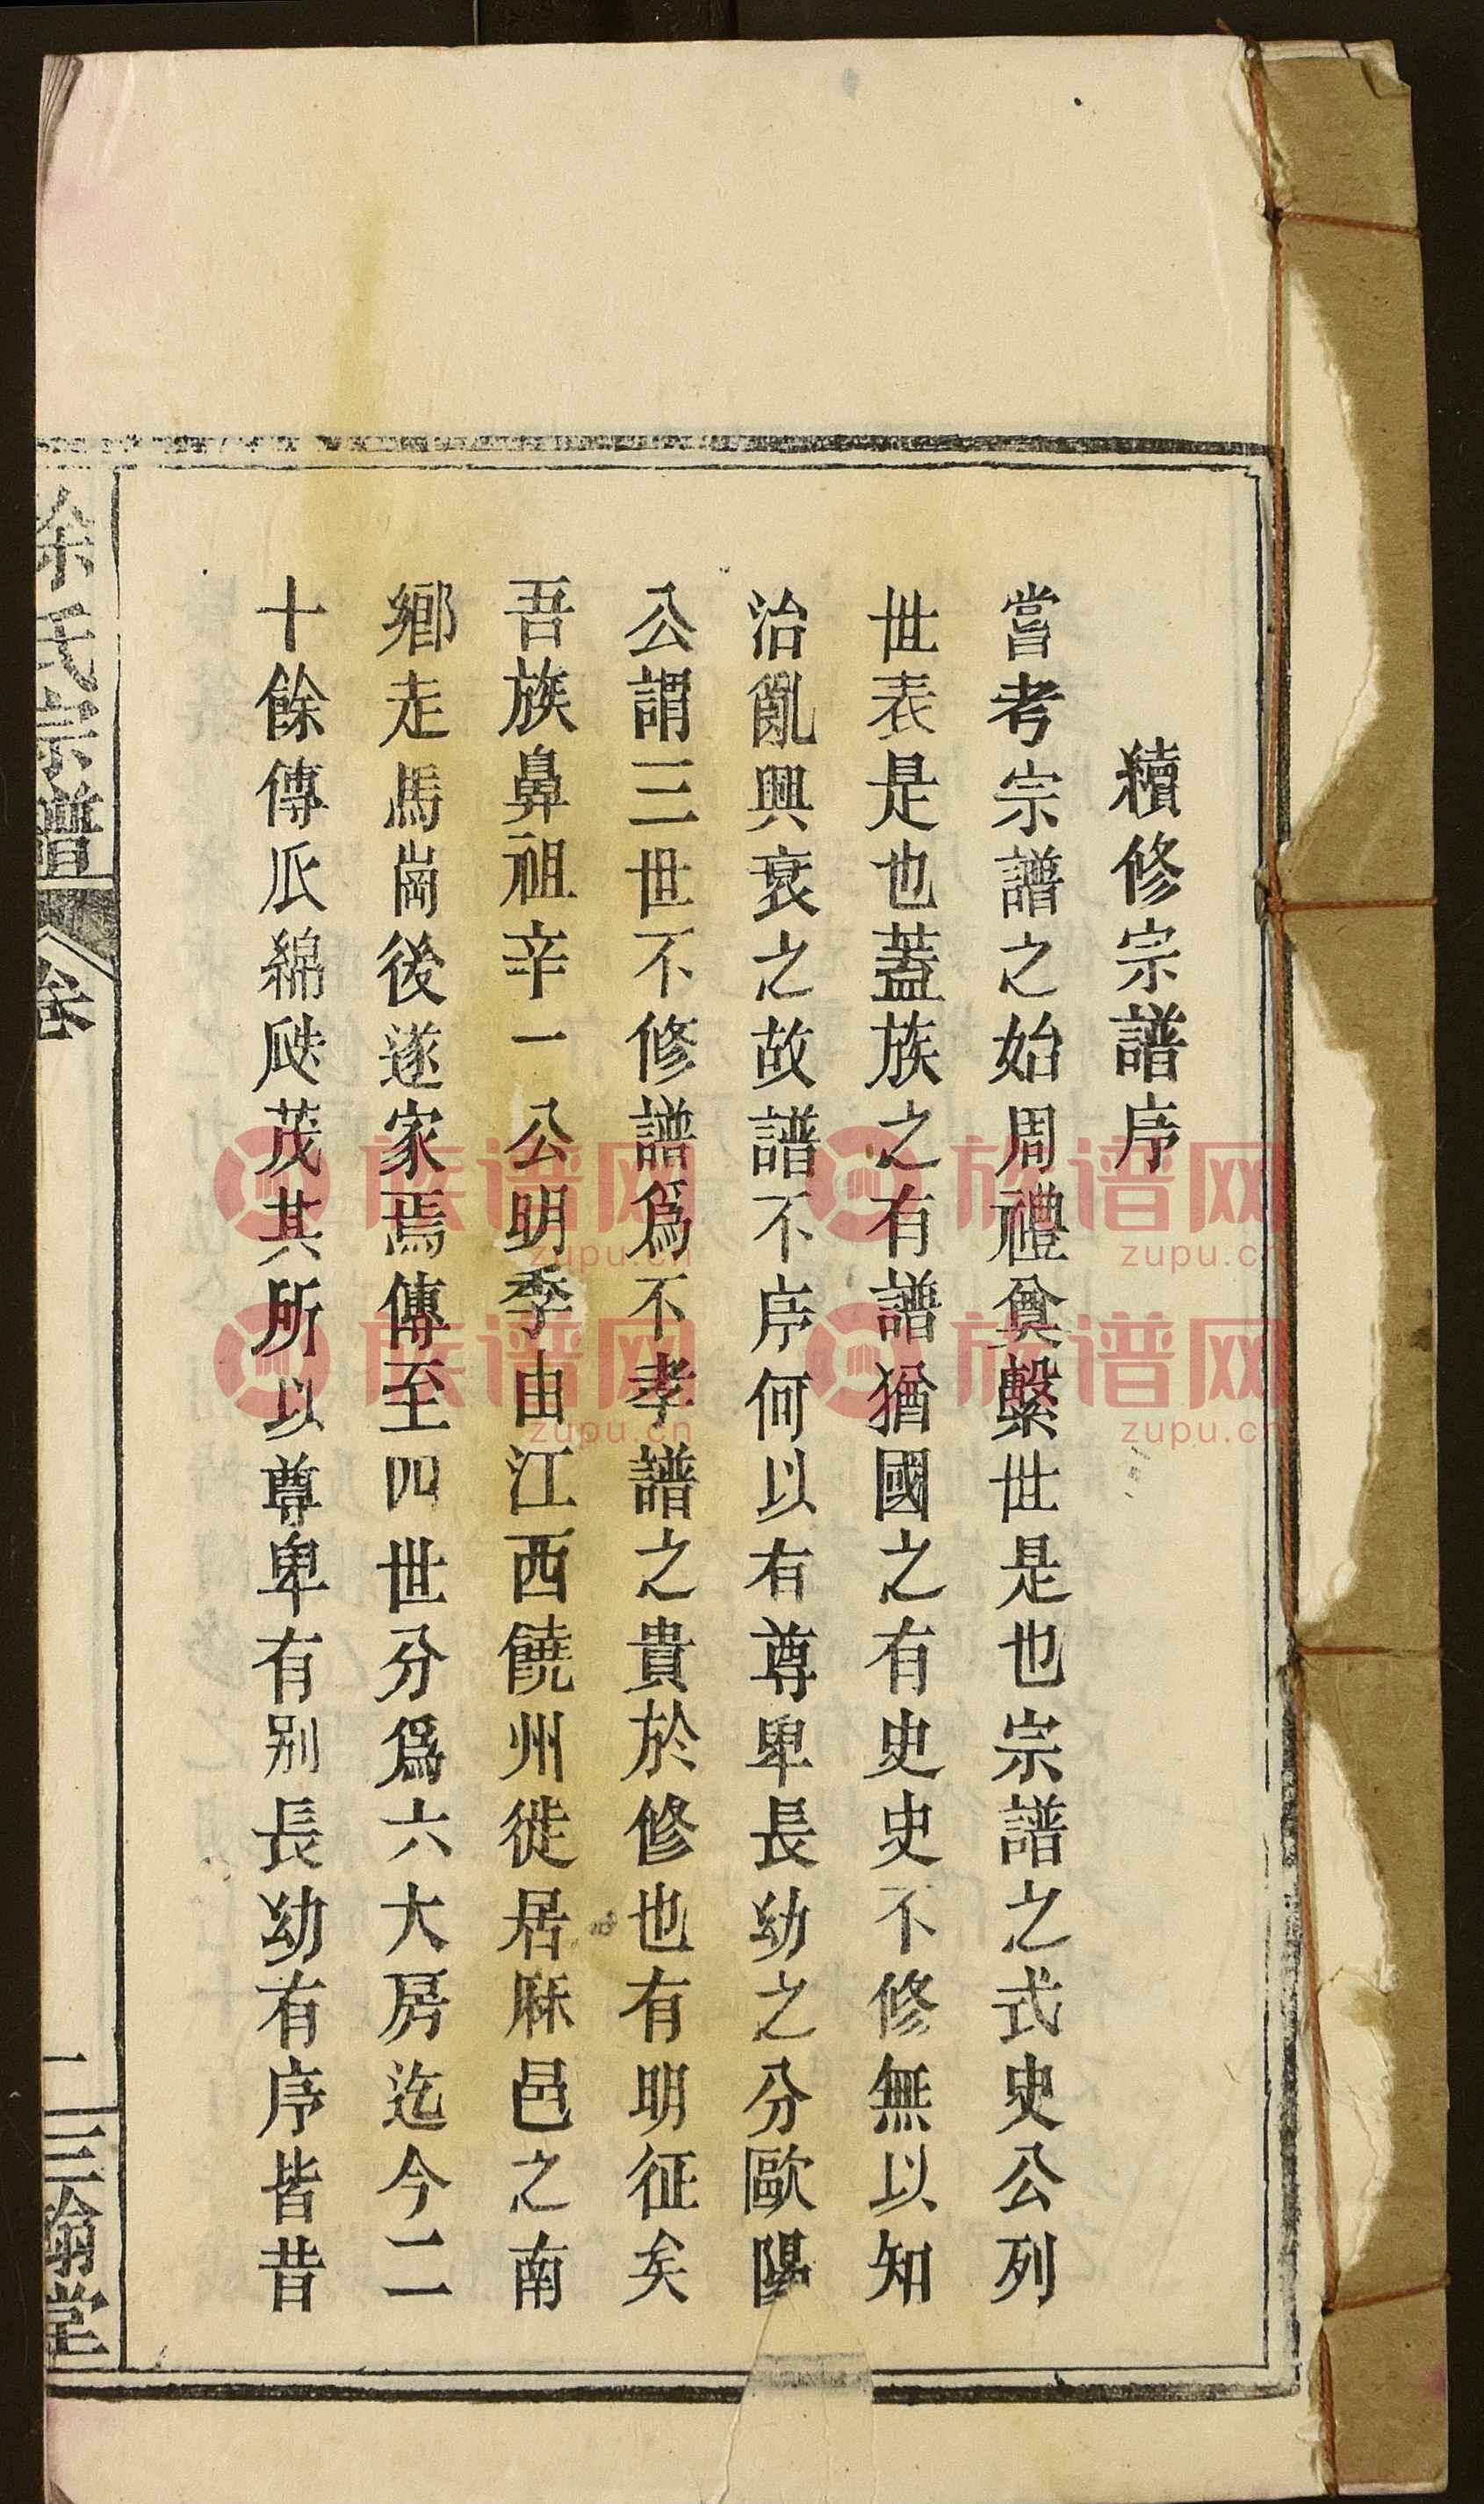 續修宗譜序
嘗考宗譜之始周禮奠繫世是也宗譜之式史公列
世表是也蓋族之有譜猶國之有史史不修無以知
治亂興衰之故譜不序何以有尊卑長幼之分歐陽
公謂三世不修譜爲不孝譜之貴於修也有明征矣
吾族鼻祖辛一公明季由江西饒州徙居麻邑之南
鄉走馬崗後遂家焉傳至四世分爲六大房迄今二
十餘傳瓜綿瓞茂其所以尊卑有别長幼有序皆昔
余氏宗譜
卷
一
三翰堂
族谱网
zupu.cn
族谱网
zupu.cn
族谱网
zupu.cn
族谱网
zupu.cn